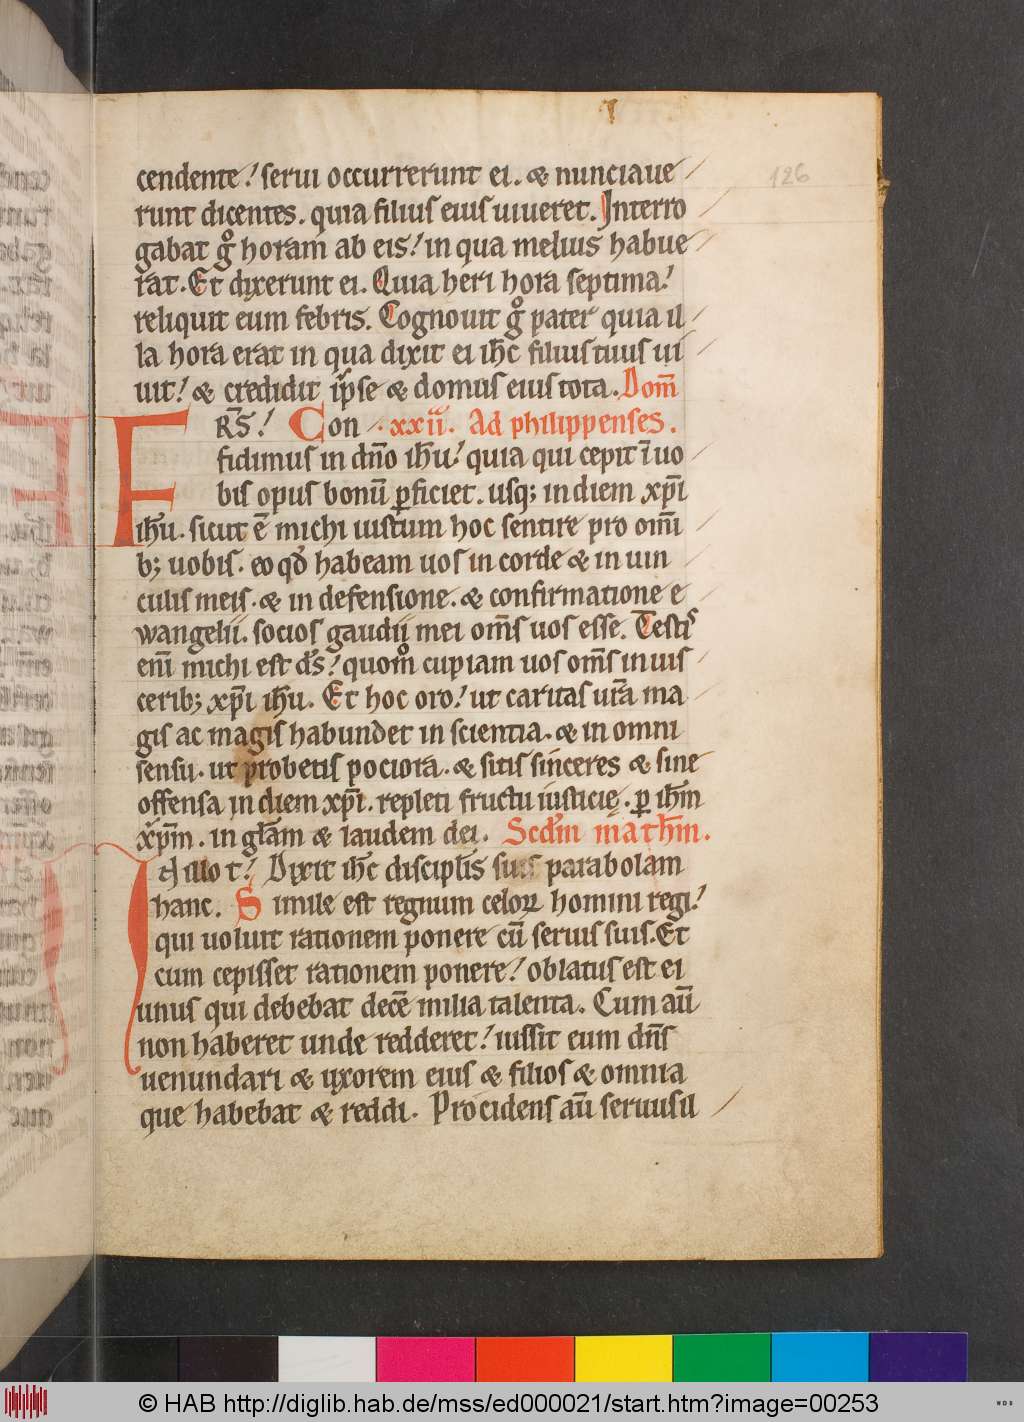 126
cendente! serui occurrerunt ei. & nunciaue
runt dicentes. quia filius eius uiueret. Interro
gabat gͦ horam ab eis! in qua melius habue
rat. Et dixerunt ei. Quia heri hora septima!
reliquit eum febris. Cognouit gͦ pater quia il
la hora erat in qua dixit ei ih̄c filius tuus ui
uit! & credidit ip̄se & domus eius tota. Dom̄
R̄S! Con . xxii. Ad philippenses.
Fidimus in dn̄o ih̄u! quia qui cepit ī uo
bis opus bonū ꝑficiet. usqꝫ in diem xp̄i
ih̄u. sicut ē michi iustum hoc sentire pro om̄i
bꝫ uobis. eo qd̄ habeam uos in corde & in uin
culis meis. & in defensione. & confirmatione e
wangelii. socios gaudii mei om̄s uos esse. Testis
enī michi est ds̄! quom̊ cupiam uos om̄s in uis
ceribꝫ xp̄i ih̄u. Et hoc oro! ut caritas ur̄a ma
gis ac magis habundet in scientia. & in omni
sensu. ut probetis pociora. & sitis sinceres & sine
offensa in diem xp̄i. repleti fructu iusticię. ꝑ ih̄m
xp̄m. in gl̄am & laudem dei. Scd̄m math̄m.
In illo t! Dixit ih̄c discipl̄is suis parabolam
hanc. Simile est regnum celoꝝ homini regi!
qui uoluit rationem ponere cū seruis suis. Et
cum cepisset rationem ponere! oblatus est ei
unus qui debebat decē milia talenta. Cum aū
non haberet unde redderet! iussit eum dn̄s
uenundari & uxorem eius & filios & omnia
que habebat & reddi. Procidens aū seruus il
© HAB http://diglib.hab.de/mss/ed000021/start.htm?image=00253